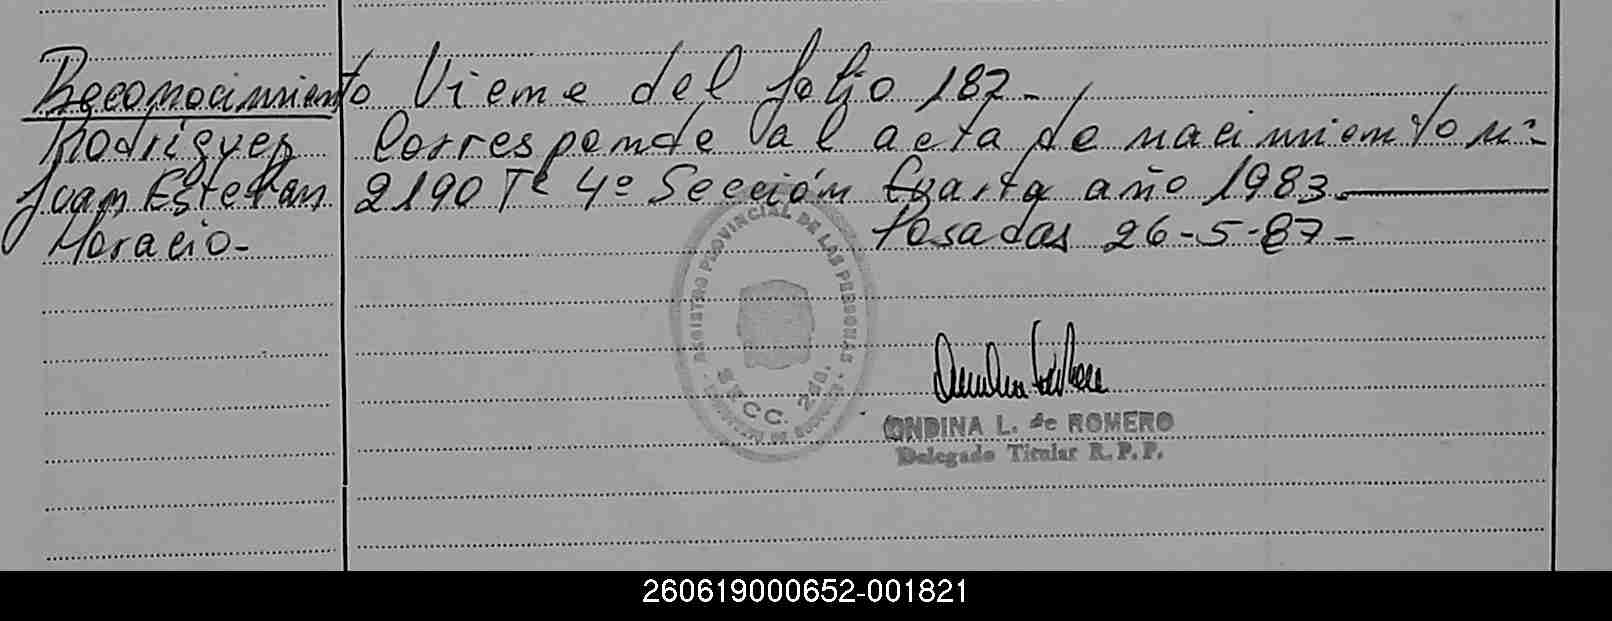 Reconocimiento
Rodríguez
Juan Esteban
Horacio-
Viene del folio 187-
Corresponde al acta de nacimiento nº
2190 Tº 4º Sección Cuarta año 1983.
Posadas 26-5-87-
REGISTRO PROVINCIAL DE LAS PERSONAS
SECC. 2da.
ONDINA L. de ROMERO
Delegado Titular R. P. P.
260619000652-001821